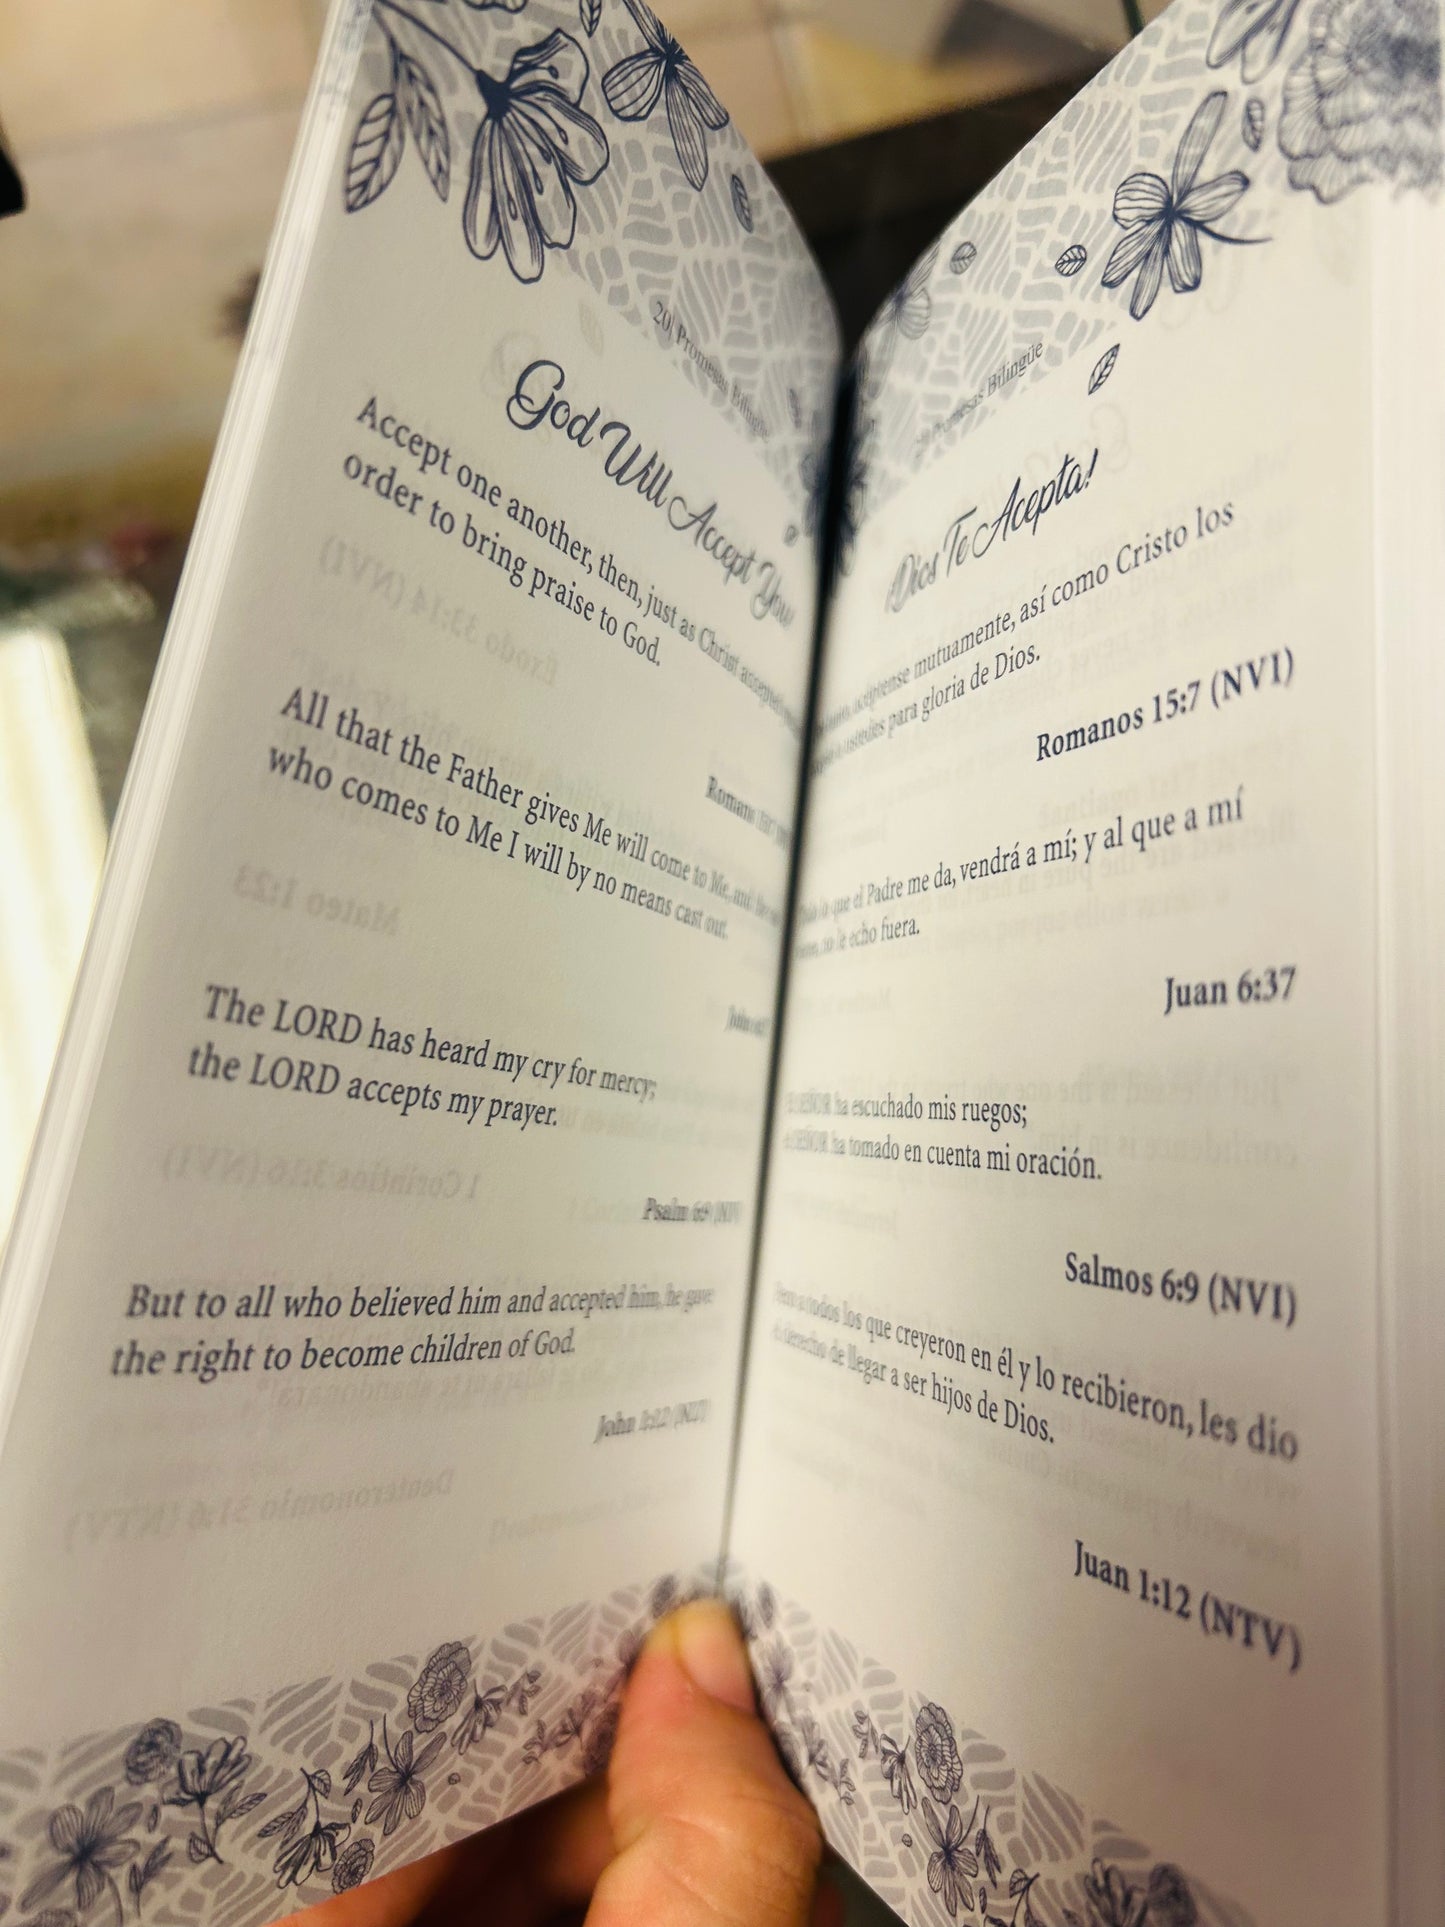 20| Promesas Bilingüe
God Will Accept You!
Accept one another, then, just as Christ accepted
order to bring praise to God.
Romans 15:7
All that the Father gives Me will come to Me, and
who comes to Me I will by no means cast out.
John
The LORD has heard my cry for mercy;
the LORD accepts my prayer.
Psalm 6:9 (NIV
But to all who believed him and accepted him, he gave
the right to become children of God.
John 1:12 (NLT)
Promesas Bilingüe
¡Dios Te Acepta!
acéptense mutuamente, así como Cristo los
a ustedes para gloria de Dios.
Romanos 15:7 (NVI)
Todo lo que el Padre me da, vendrá a mí; y al que a mí
no le echo fuera.
Juan 6:37
SEÑOR ha escuchado mis ruegos;
SEÑOR ha tomado en cuenta mi oración.
Salmos 6:9 (NVI)
Pero a todos los que creyeron en él y lo recibieron, les dio
el derecho de llegar a ser hijos de Dios.
Juan 1:12 (NTV)